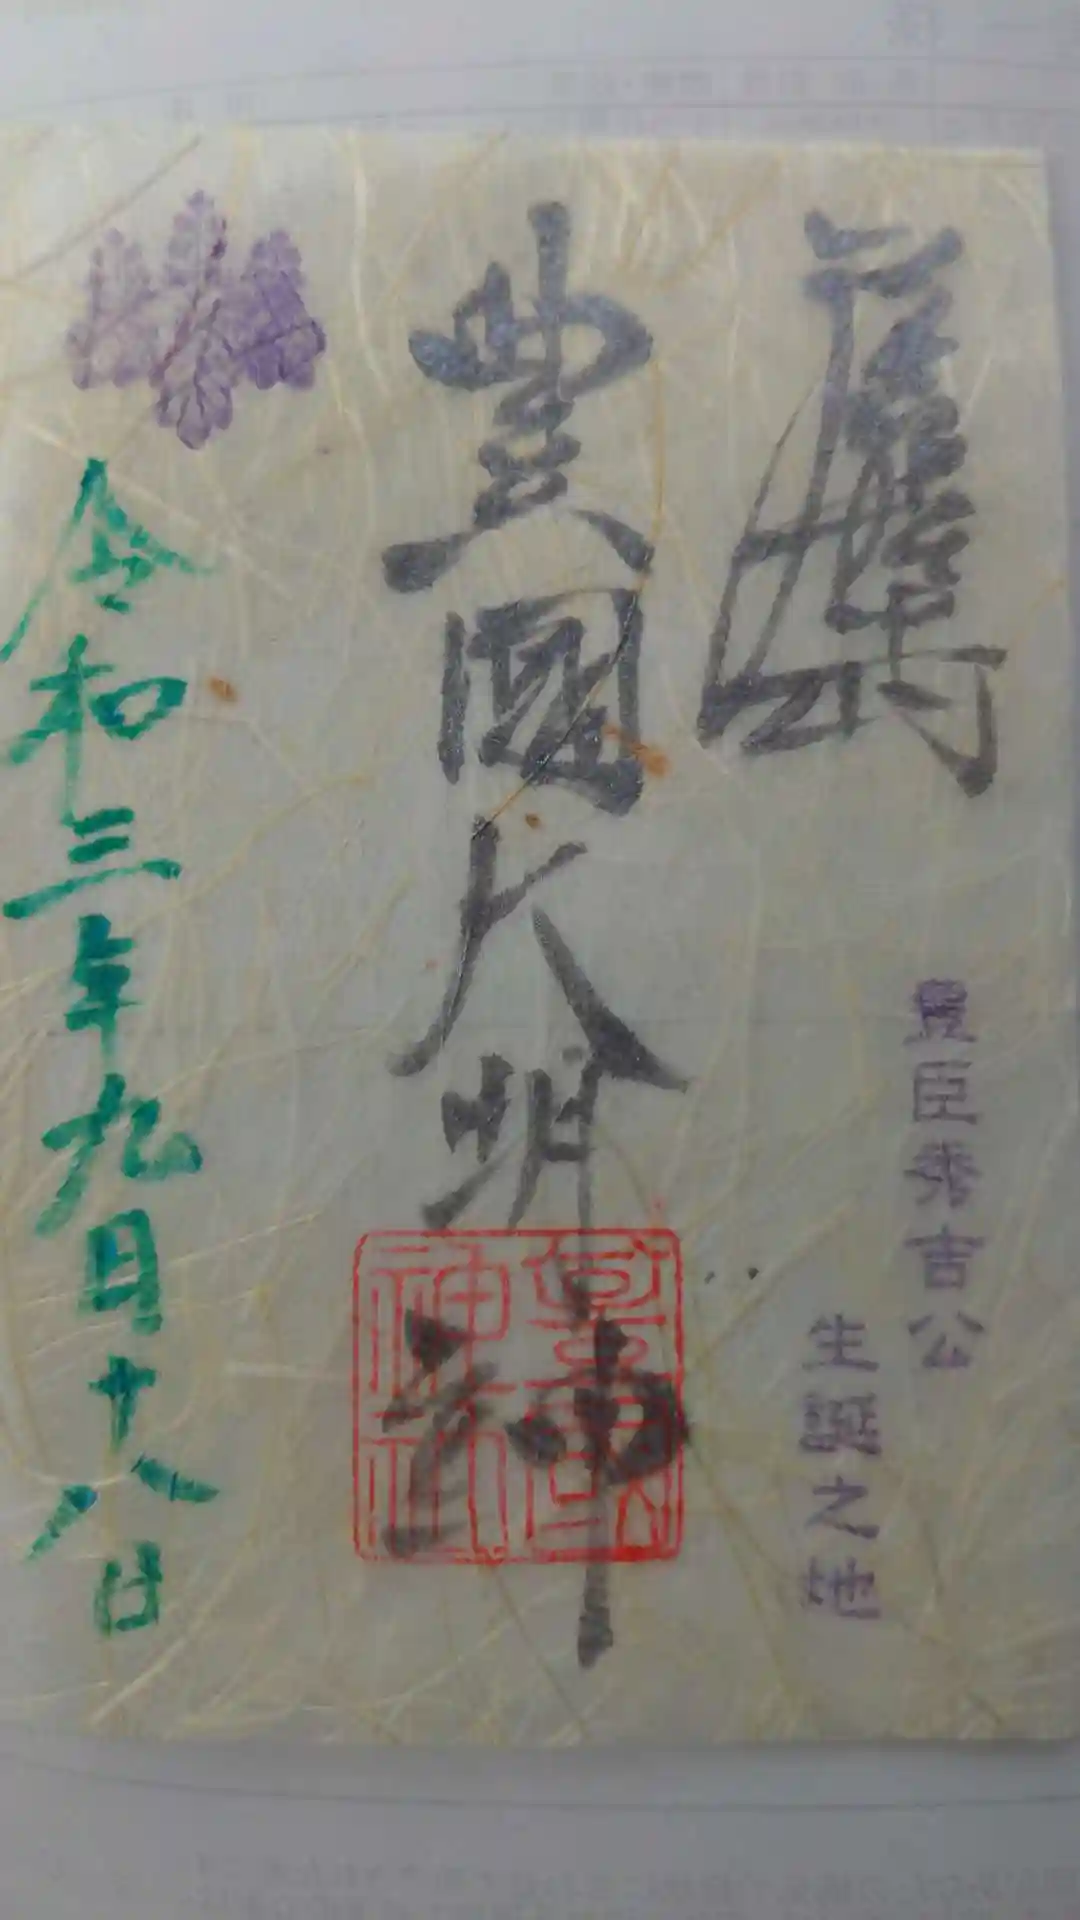 豊臣秀吉公
生誕之地
豊國大明神
豊國神社
令和三年九月十八日